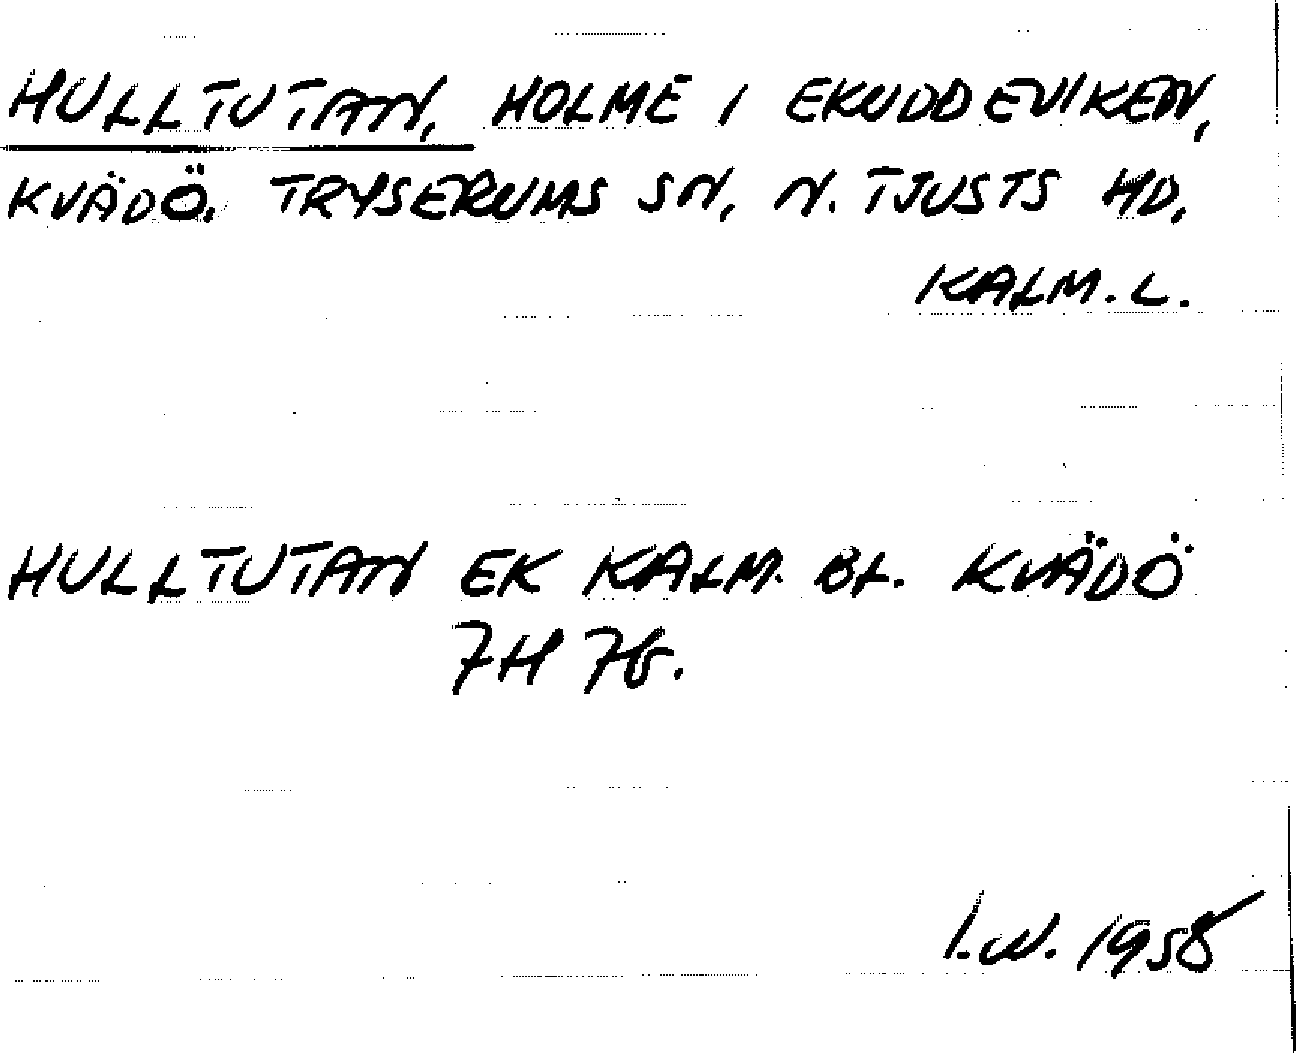 HULLTUTAN, HOLME I EKUDDEVIKEN,
KVÄDÖ. TRYSERUMS SN, N. TJUSTS HD,
KALM. L.
HULLTUTAN EK KALM. BL. KVÄDÖ
7H 7b.
I.W. 1958